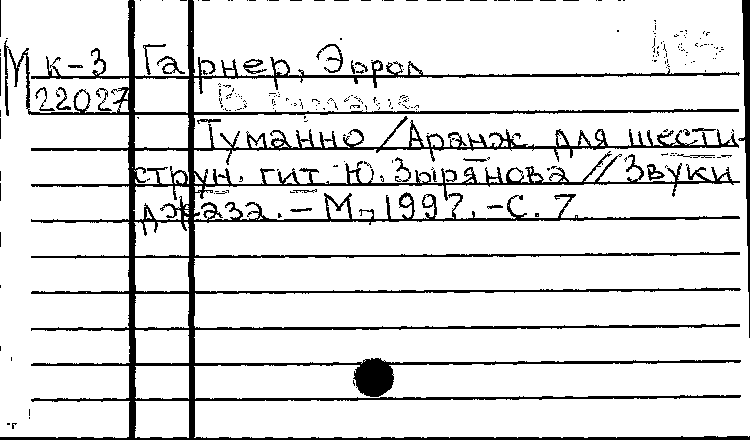 М к-3 Гарнер, Эррол
22027 В тумане
Туманно / Аранж. для шести-
струн. гит. Ю. Зырянова // Звуки
джаза. – М., 1997. – С. 7.